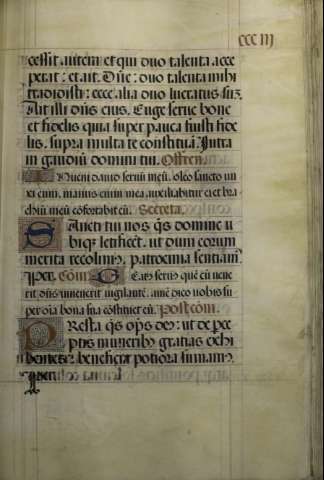 ccc iij
cessit autem et qui duo talenta acce
perat: et ait. Dñe: duo talenta mihi
tradidisti: ecce alia duo lucratus suʒ.
Ait illi dñs eius. Euge serue bone
et fidelis quia super pauca fuisti fide
lis. supra multa te constituã. Intra
in gaudiũ domini tui. Offeren.
Inueni dauid seruũ meũ. oleo sancto un
xi eum. manus enim mea auxiliabitur ei et bra
chiũ meũ cõfortabit eũ. Secreta.
Sancti tui nos q̃s domine u
bique letificẽt. ut dum eorum
merita recolimus. patrocinia sentiam9.
per. Com̃. Beatus seruus quẽ cũ uene
rit dñs inuenerit uigilantẽ. amẽ dico uobis su
per oĩa bona sua cõstituet eũ. Postcom.
Presta q̃s op̃s de9: ut de perce
ptis muneribus gratias exhi
bentes: beneficia potiora sumam9.
per.